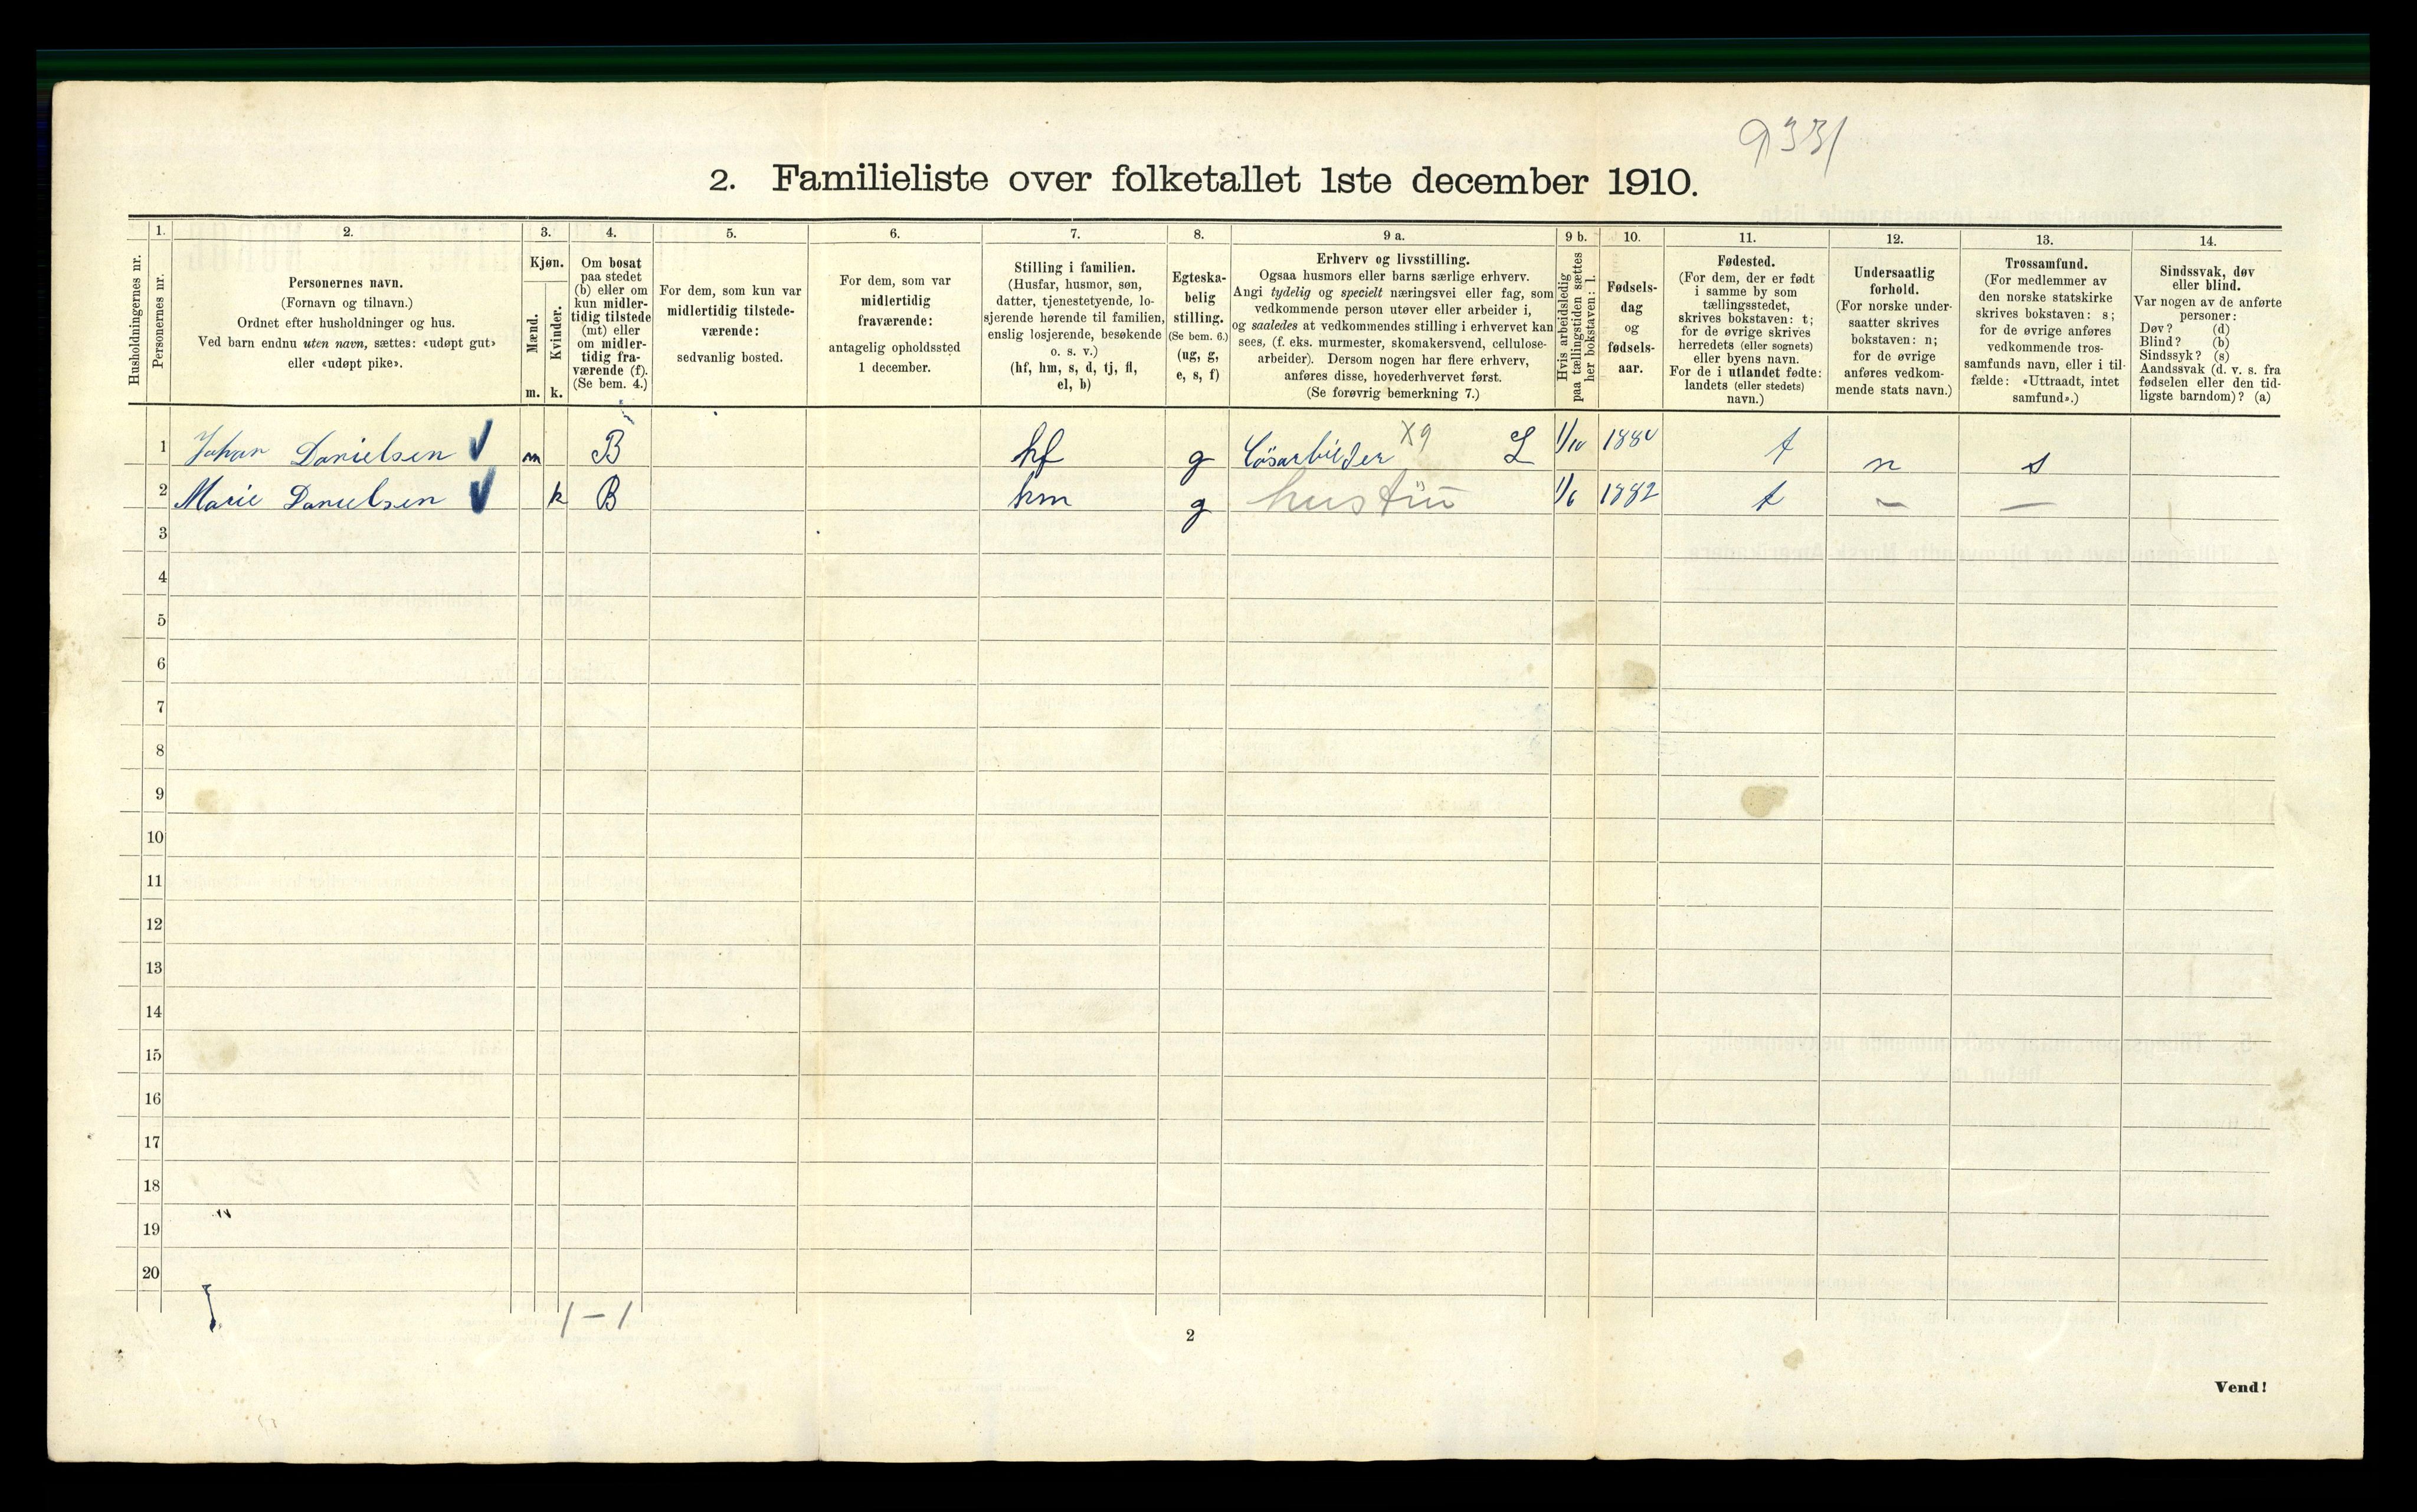 9331
2. Familieliste over folketallet 1ste december 1910.
Husholdningernes nr.
1.
Personernes nr.
2.
Personernes navn.
(Fornavn og tilnavn.)
Ordnet efter husholdninger og hus.
Ved barn endnu uten navn, sættes: «udøpt gut»
eller «udøpt pike».
3.
Kjøn.
Mænd.
m.
Kvinder.
k.
4.
Om bosat
paa stedet
(b) eller om
kun midler-
tidig tilstede
(mt) eller
om midler-
tidig fra-
værende (f).
(Se bem. 4.)
5.
For dem, som kun var
midlertidig tilstede-
værende:
sedvanlig bosted.
6.
For dem, som var
midlertidig
fraværende:
antagelig opholdssted
1 december.
7.
Stilling i familien.
(Husfar, husmor, søn,
datter, tjenestetyende, lo-
sjerende hørende til familien,
enslig losjerende, besøkende
o. s. v.)
(hf, hm, s, d, tj, fl,
el, b)
8.
Egteska-
belig
stilling.
(Se bem. 6.)
(ug, g,
e, s, f)
9 a.
Erhverv og livsstilling.
Ogsaa husmors eller barns særlige erhverv.
Angi tydelig og specielt næringsvei eller fag, som
vedkommende person utøver eller arbeider i,
og saaledes at vedkommendes stilling i erhvervet kan
sees, (f. eks. murmester, skomakersvend, cellulose-
arbeider). Dersom nogen har flere erhverv,
anføres disse, hovederhvervet først.
(Se forøvrig bemerkning 7.)
9 b.
Hvis arbeidsledig
paa tællingstiden sættes
her bokstaven: l.
10.
Fødsels-
dag
og
fødsels-
aar.
11.
Fødested.
(For dem, der er født
i samme by som
tællingsstedet,
skrives bokstaven: t;
for de øvrige skrives
herredets (eller sognets)
eller byens navn.
For de i utlandet fødte:
landets (eller stedets)
navn.)
12.
Undersaatlig
forhold.
(For norske under-
saatter skrives
bokstaven: n;
for de øvrige
anføres vedkom-
mende stats navn.)
13.
Trossamfund.
(For medlemmer av
den norske statskirke
skrives bokstaven: s;
for de øvrige anføres
vedkommende tros-
samfunds navn, eller i til-
fælde: «Uttraadt, intet
samfund».)
14.
Sindssvak, døv
eller blind.
Var nogen av de anførte
personer:
Døv? (d)
Blind? (b)
Sindssyk? (s)
Aandssvak (d. v. s. fra
fødselen eller den tid-
ligste barndom)? (a)
1 Johan Danielsen m B hf g Løsarbeider X9 L 1/10 1880 t n s
2 Marie Danielsen k B hm g hustru 1/6 1882 t – –
3
4
5
6
7
8
9
10
11
12
13
14
15
16
17
18
19
20
1 – 1
2
Vend!